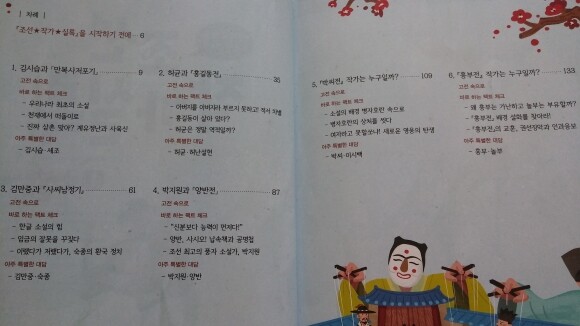 | 차례 |
『조선★작가★실록』을 시작하기 전에 · 6
1. 김시습과 『만복사저포기』 9
고전 속으로
바로 하는 팩트 체크
- 우리나라 최초의 소설
- 천재에서 떠돌이로
- 진짜 삼촌 맞아? 계유정난과 사육신
아주 특별한 대담
- 김시습·세조
2. 허균과 『홍길동전』 35
고전 속으로
바로 하는 팩트 체크
- 아버지를 아버지라 부르지 못하고! 적서 차별
- 홍길동이 살아 있다?
- 허균은 정말 역적일까?
아주 특별한 대담
- 허균·허난설헌
3. 김만중과 『사씨남정기』 61
고전 속으로
바로 하는 팩트 체크
- 한글 소설의 힘
- 임금의 잘못을 꾸짖다
- 이랬다가 저랬다가, 숙종의 환국 정치
아주 특별한 대담
- 김만중·숙종
4. 박지원과 『양반전』 87
고전 속으로
바로 하는 팩트 체크
- "신분보다 능력이 먼저다!"
- 양반, 사시오! 납속책과 공명첩
- 조선 최고의 풍자 소설가, 박지원
아주 특별한 대담
- 박지원·양반
5. 『박씨전』 작가는 누구일까? 109
고전 속으로
바로 하는 팩트 체크
- 소설의 배경 병자호란 속으로
- 병자호란의 상처를 씻다
- 여자라고 못할쏘냐! 새로운 영웅의 탄생
아주 특별한 대담
- 박씨·이시백
6. 『흥부전』 작가는 누구일까? 133
고전 속으로
바로 하는 팩트 체크
- 왜 흥부는 가난하고 놀부는 부유할까?
- 『흥부전』 배경 설화를 찾아라!
- 『흥부전』의 교훈, 권선징악과 인과응보
아주 특별한 대담
- 흥부·놀부